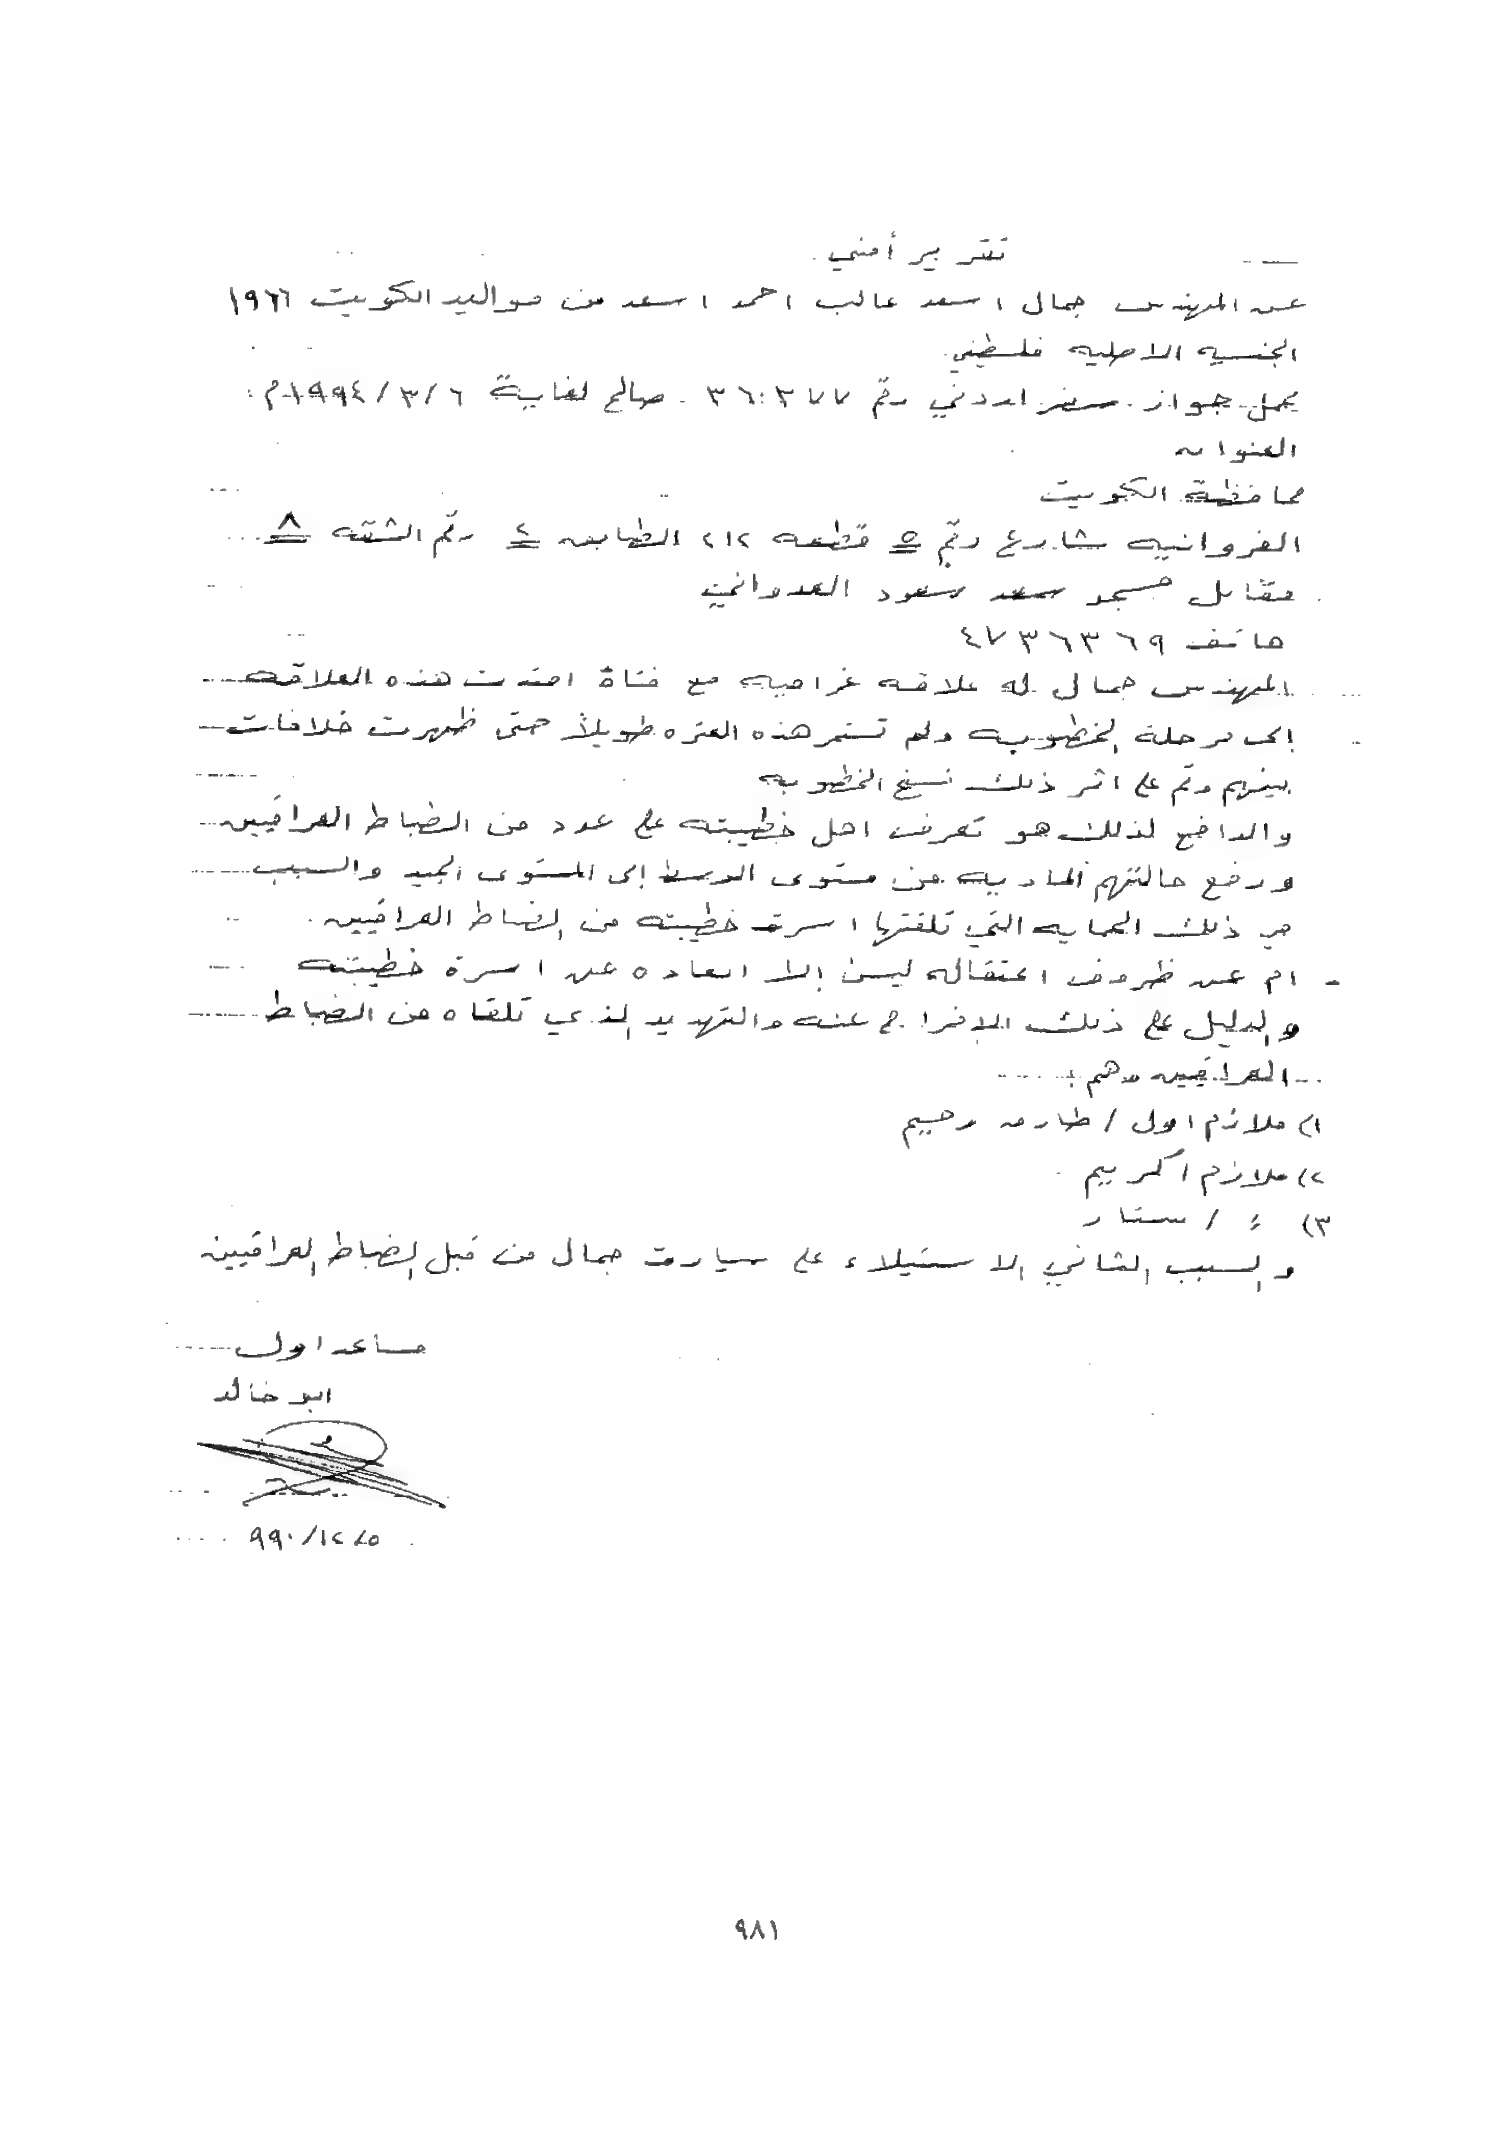 تقرير أمني
عن المهندس جمال اسعد غالب احمد اسعد من مواليد الكويت ١٩٦٦
الجنسيه الاصليه فلسطيني
يحمل جواز سفر اردني رقم ٣٦٠٣٧٧ صالح لغاية ٦/٣/١٩٩٤م
العنوان
محافظة الكويت
الفروانيه شارع رقم ٥ قطعه ٢١٢ الطابق ٤ رقم الشقه ٨
مقابل مسجد سعد سعود العدواني
هاتف ٤٧٣٦٣٦٩
المهندس جمال له علاقه غراميه مع فتاة امتدت هذه العلاقه
إلى مرحلة الخطوبه ولم تستمر هذه الفتره طويلاً حتى ظهرت خلافات
بينهم وتم على اثر ذلك فسخ الخطوبه
والدافع لذلك هو تعرف اهل خطيبته على عدد من الضباط العراقيين
ورفع حالتهم الماديه من مستوى الوسط إلى المستوى الجيد والسبب
في ذلك الحمايه التي تلقتها اسرة خطيبته من الضباط العراقيين.
- ام عن ظروف اعتقاله ليس إلا ابعاده عن اسرة خطيبته
والدليل على ذلك الافراج عنه والتهديد الذي تلقاه من الضباط
العراقيين وهم:
١) ملازم اول / طارق رحيم
٢) ملازم اكريم
٣) ء / ستار
والسبب الثاني الاستيلاء على سيارة جمال من قبل الضباط العراقيين
مساعد اول
ابو خالد
٩٩٠/١٢/٥
٩٨١